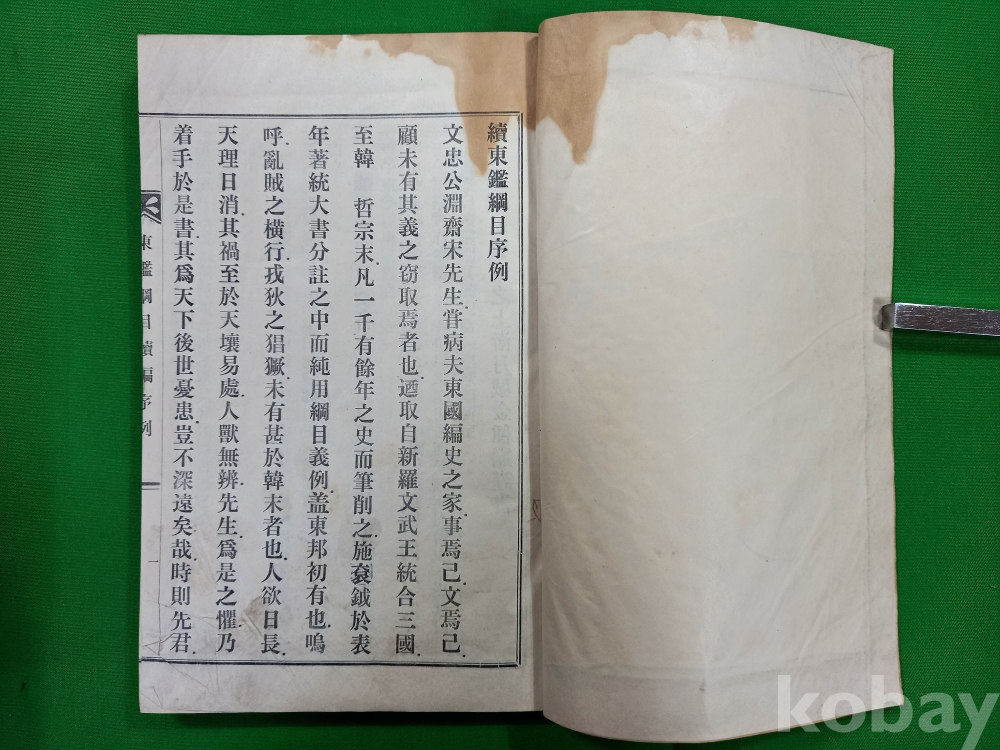 續東鑑綱目序例
文忠公淵齋宋先生嘗病夫東國編史之家事焉己文焉己
顧未有其義之窃取焉者也迺取自新羅文武王統合三國
至韓 哲宗末凡一千有餘年之史而筆削之施袞鉞於表
年著統大書分註之中而純用綱目義例盖東邦初有也嗚
呼亂賊之橫行戎狄之猖獗未有甚於韓末者也人欲日長
天理日消其禍至於天壤易處人獸無辨先生爲是之懼乃
着手於是書其爲天下後世憂患豈不深遠矣哉時則先君
東鑑綱目續編序例 一
kobay